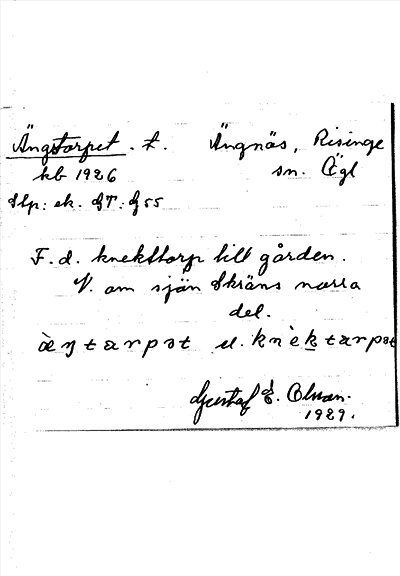 Ängstorpet. t. Ängnäs, Risinge
kb 1926 sn. Ögl
Slp: ek. GT: G 55
F. d. knekttorp till gården.
V. om sjön Skräns norra
del.
æ̀ŋtarpət el. knèktarpət
Gustaf E. Olsson.
1929.